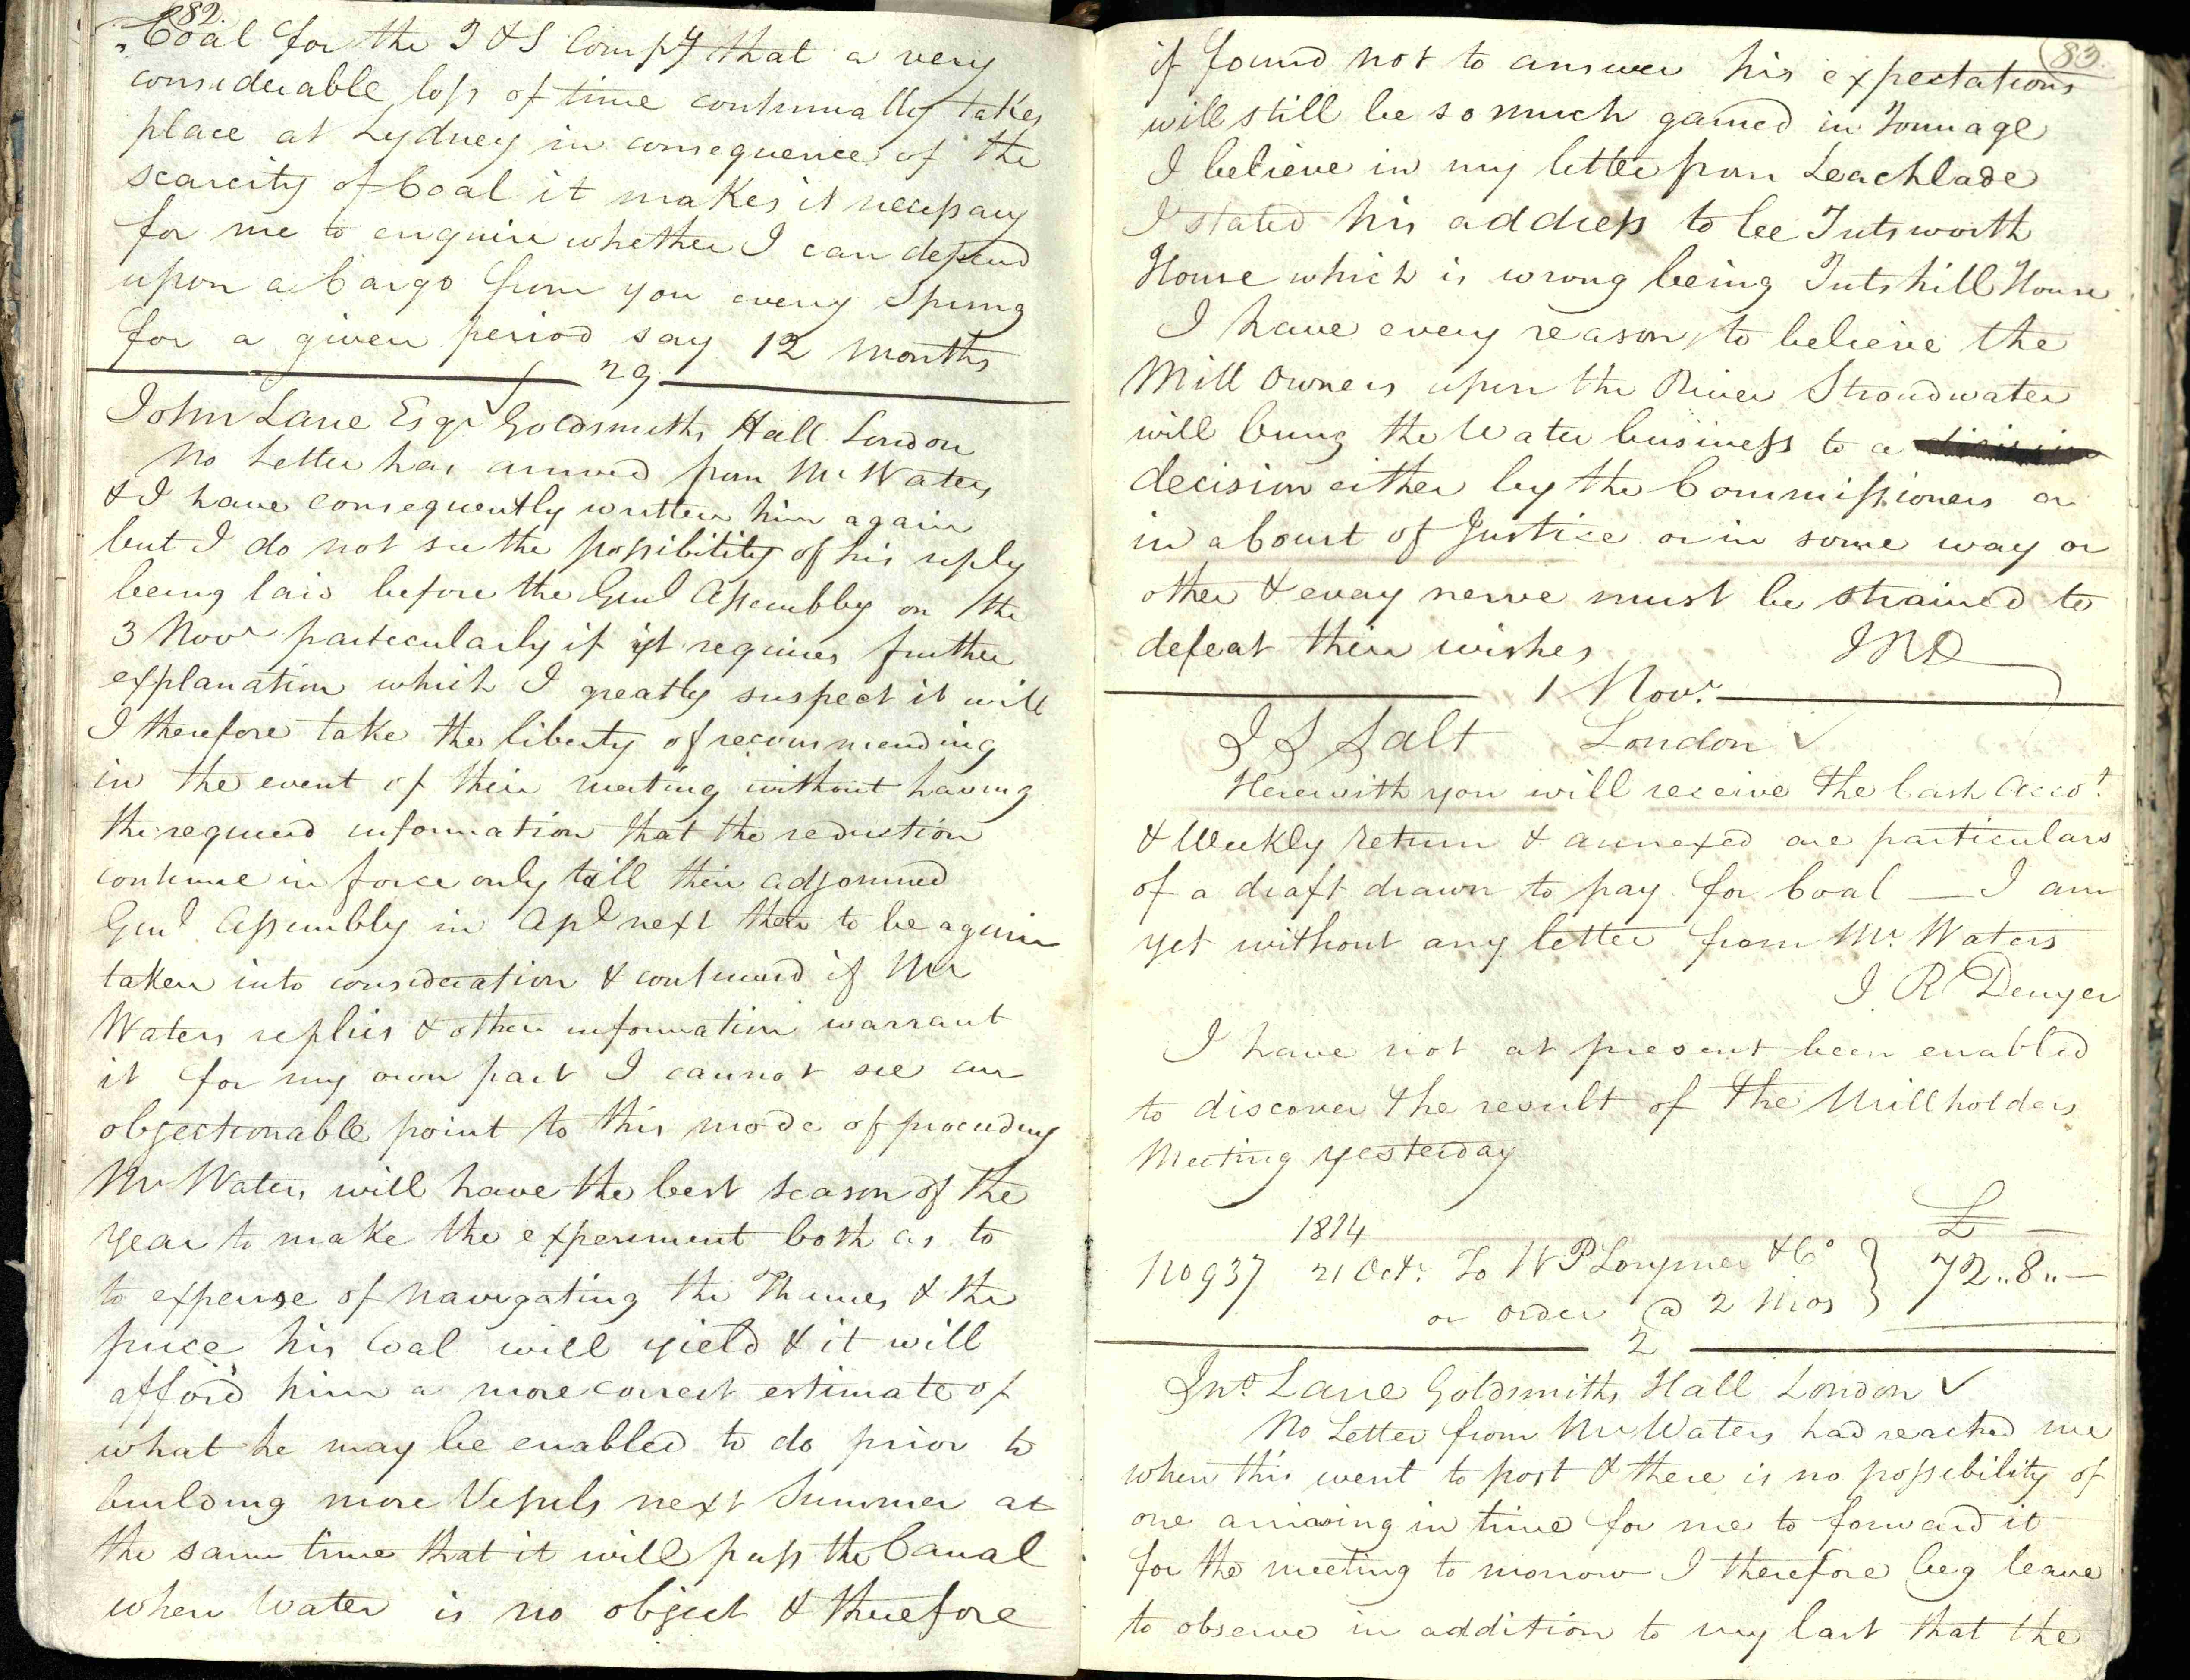 82.
Coal for the T & S Compy that a very
considerable loss of time continually takes
place at Lydney in consequence of the
scarcity of Coal it makes it necessary
for me to enquire whether I can depend
upon a Cargo from you every Spring
for a given period say 12 Months
29
John Lane Esqr Goldsmiths Hall London
No Letter has arrived from Mr Waters
& I have consequently written him again
but I do not see the possibility of his reply
being laid before the Genl Assembly on the
3 Novr particularly if it requires further
explanation which I greatly suspect it will
I therefore take the liberty of recommending
in the event of their meeting without having
the required information that the reduction
continue in force only till their adjourned
Genl Assembly in Apl next then to be again
taken into consideration & continued if Mr
Waters replies & other information warrant
it for my own part I cannot see an
objectionable point to this mode of proceeding
Mr Waters will have the best season of the
year to make the experiment both as to
to expense of navigating the Thames & the
price his Coal will yield & it will
afford him a more correct estimate of
what he may be enabled to do prior to
building more Vessels next Summer at
the same time that it will pass the Canal
when Water is no object & therefore
83.
if found not to answer his expectations
will still be so much gained in Tonnage
I believe in my letter from Leachlade
I stated his address to be Tutsworth
House which is wrong being Tutshill House
I have every reason to believe the
Mill Owners upon the River Stroudwater
will bring the Water business to a
decision either by the Commissioners or
in a Court of Justice or in some way or
other & every nerve must be strained to
defeat their wishes JRD
1 Novr.
J S Salt London ✓
Herewith you will receive the Cash Accot.
& Weekly return & annexed are particulars
of a draft drawn to pay for Coal — I am
yet without any letter from Mr. Waters
J R Denyer
I have not at present been enabled
to discover the result of the Millholders
Meeting yesterday
1814 £
No 937 21 Octr. To W P Lorymer & Co } 72..8..—
or order @ 2 Mos
2
Jno. Lane Goldsmiths Hall London ✓
No Letter from Mr Waters had reached me
when this went to post & there is no possibility of
one arriving in time for me to forward it
for the meeting to morrow I therefore beg leave
to observe in addition to my last that the